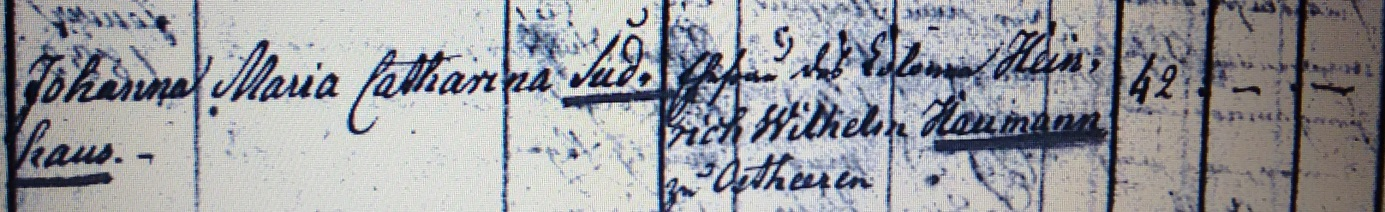 Johanna Maria Catharina Sud-
haus. -
Ehefrau des Colonen Hein-
rich Wilhelm Haumann
zu Ostheeren
42. - -